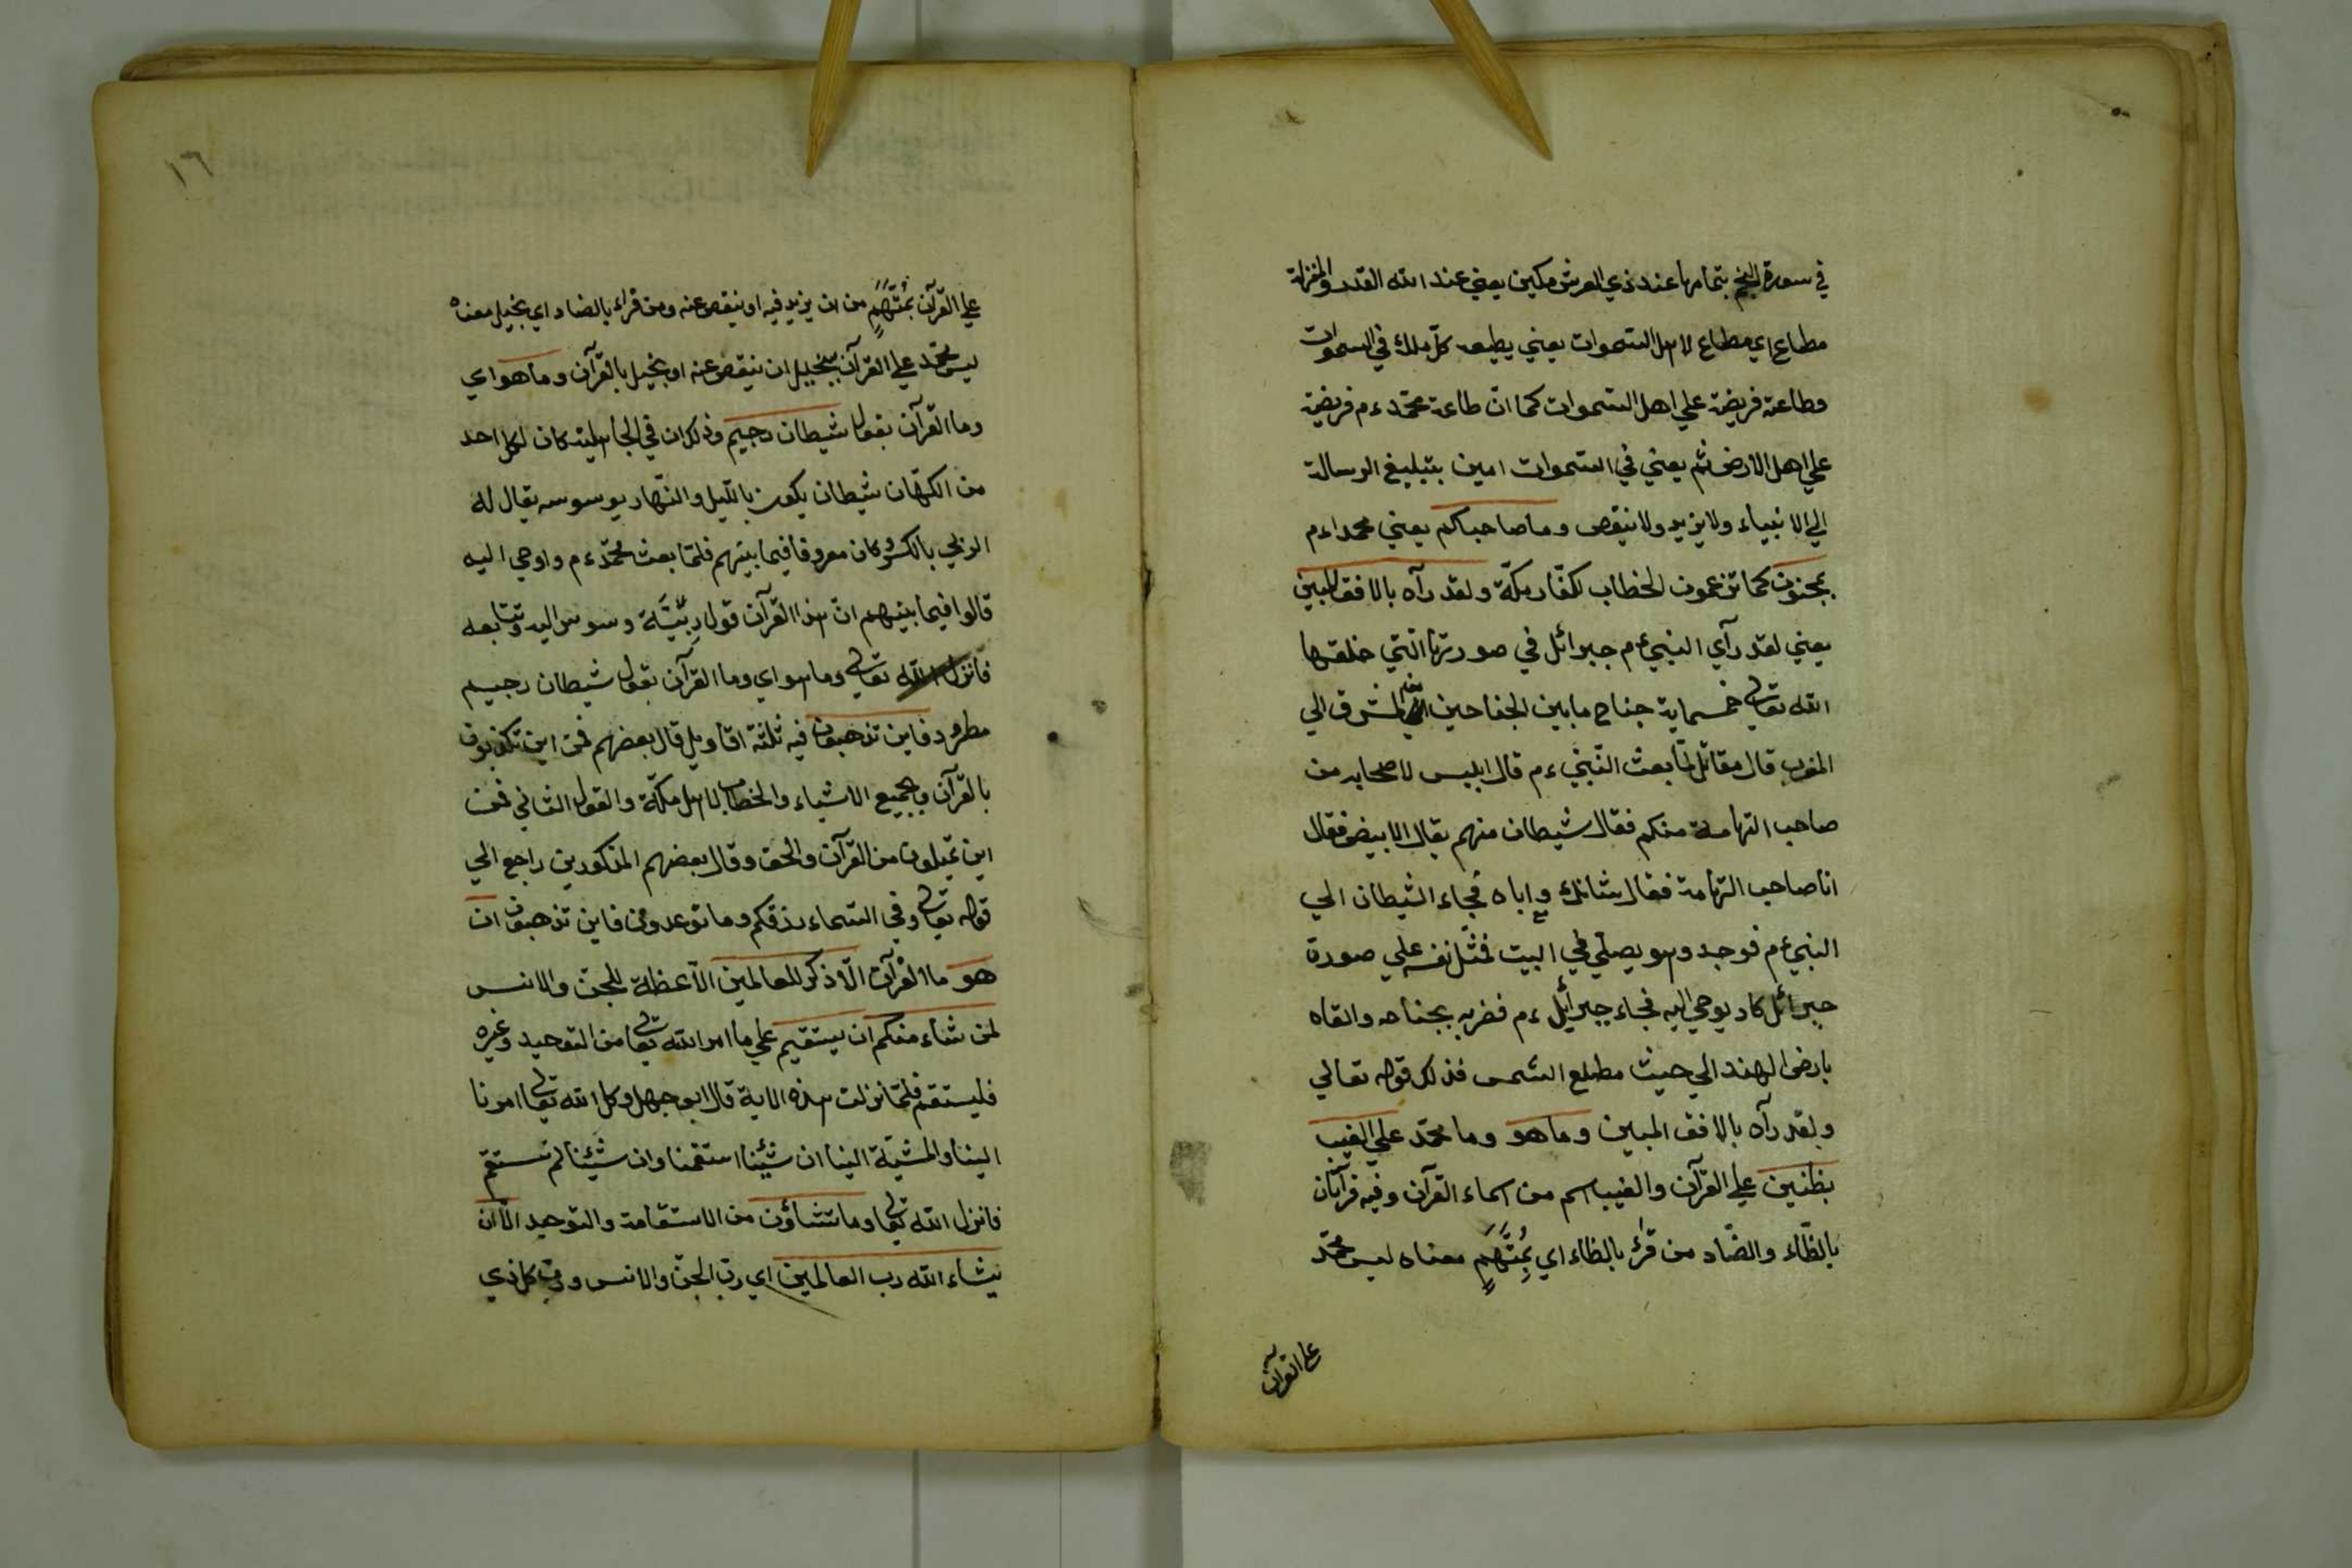 في سورة النجم بتمامها عند ذي العرش مكين يعني عند الله القدر والمنزلة
مطاع اي مطاع لاهل السموات يعني يطيعه كل ملك في السموات
وطاعته فريضة علي اهل السموات كما ان طاعة محمد ءم فريضة
علي اهل الارض ثم يعني في السموات امين بتبليغ الرسالة
الي الانبياء ولا يزيد ولا ينقص وما صاحبكم يعني محمدا ءم
بمجنون كما تزعمون الخطاب لكفّار مكّة ولقد رآه بالافق المبين
يعني لقد رآي النبي ءم جبرائل في صورتها التي خلقها
الله تعالي خمسماية جناح ما بين الجناحين المشرق الي
المغرب قال مقاتل لمّا بعث النّبي ءم قال ابليس لاصحابه من
صاحب التهامة منكم فقال شيطان منهم يقال الابيض فقال
انا صاحب التهامة فقال شانك واياه فجاء الشيطان الي
النبي ءم فوجد وهو يصلّي في البيت فمثّل نفسه علي صورة
جبرائل كاد يوحي اليه فجاء جبرائيل ءم فضربه بجناحه والقاه
بارض الهند الي حيث مطلع الشمس فذلك قوله تعالي
ولقد رآه بالافق المبين وما هو وما محمّد علي الغيب
بظنين علي القرآن والغيب اسم من اسماء القرآن وفيه قرآتان
بالظّاء والضّاد من قرٰء بالظاء اي بمُتَّهَمٍ معناه ليس محمّد
علي القرآن
١٦
علي القرآن بمُتَّهَمٍ من ان يزيد فيه او ينقص عنه ومن قراء بالضاد اي بخيل معناه
ليس محمّد علي القرآن ببخيل ان ينقص عنه او بخيل بالقرآن وما هو اي
وما القرآن بقول شيطان رجيم وذلك ان في الجاهلية كان لكل احد
من الكهّان شيطان يكون بالليل والنّهار يوسوسه يقال له
الرئي بالكسر وكان معروفا فيما بينهم فلمّا بعث محمّد ءم واوحي اليه
قالوا فيما بينهم انّ هذا القرآن قول رِئيّه وسوس اليه وتتابعه
فانزل الله تعالي وما هو اي وما القرآن بقول شيطان رجيم
مطرود فاين تذهبون فيه ثلثة اقاويل قال بعضهم فمن اين تكذبون
بالقرآن وبجميع الاشياء والخطاب لاهل مكّة والقول الثاني فمن
اين تميلون من القرآن والحق وقال بعضهم المذكورين راجع الي
قوله تعالي وفي السماء رزقكم وما توعدون فاين تذهبون ان
هو ما القرآن الّا ذكر للعالمين الّا عظة للجن والانس
لمن شاء منكم ان يستقيم علي ما امر الله تعالي من التوحيد وغيره
فليستقم فلمّا نزلت هذه الاية قال ابو جهل وكل الله تعالي امرنا
الينا والمشيّة الينا ان شئنا استقمنا وان شئنا لم نستقم
فانزل الله تعالي وما تشاؤن من الاستقامة والتوحيد الّا ان
يشاء الله رب العالمين اي ربّ الجنّ والانس وربّ كل ذي